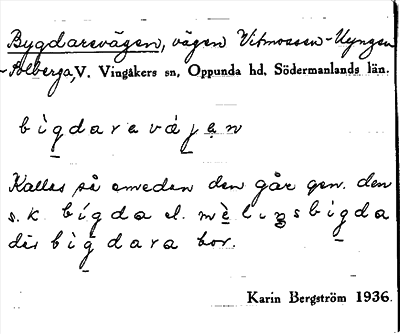 Bygdarevägen, vägen Vitmossen-Uyngen
-Solberga, V. Vingåkers sn, Oppunda hd, Södermanlands län.
bìgdaravájẹn
Kallas så emedan den går gen. den
s.k. bígda el. mèlịnsbìgda
där bìgdara bor.
Karin Bergström 1936.